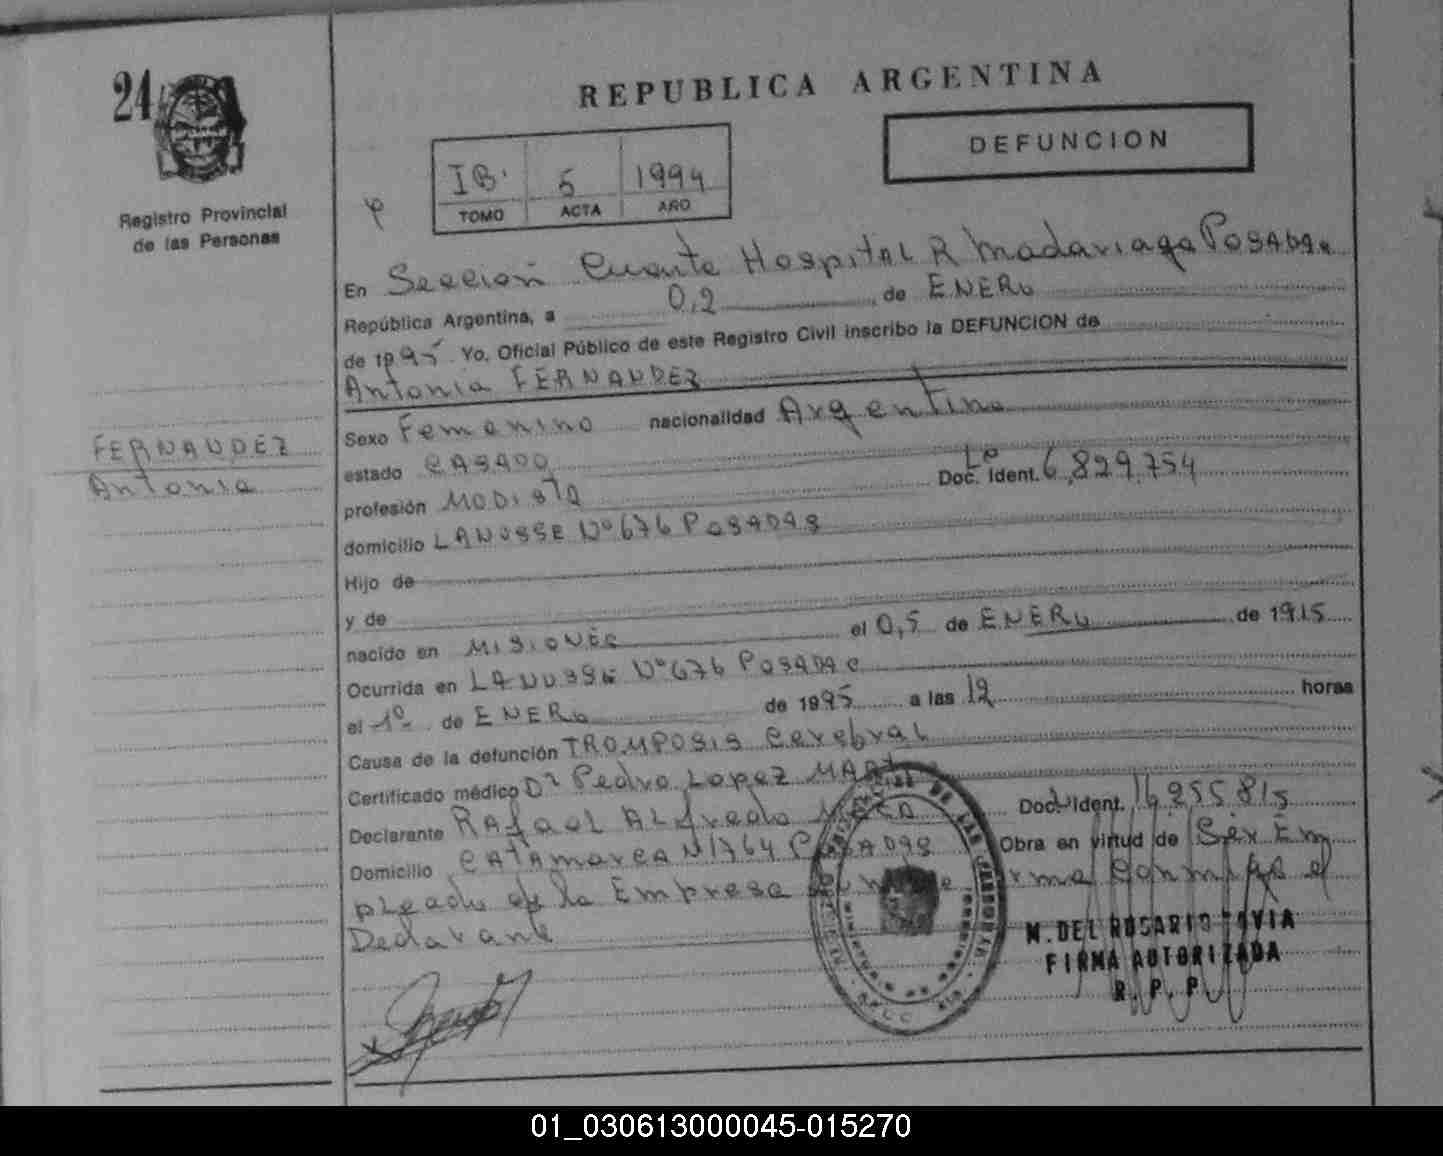 24
REPUBLICA ARGENTINA
DEFUNCION
IB. 5 1994
TOMO ACTA AÑO
Registro Provincial
de las Personas
En Sección Cuarta Hospital R Madariaga Posadas
República Argentina, a 02 de ENERO
de 1995. Yo, Oficial Público de este Registro Civil inscribo la DEFUNCION de
Antonia FERNANDEZ
FERNANDEZ
Antonia
Sexo Femenino nacionalidad Argentina
estado CASADO
profesión MODISTA Doc. Ident. Lc 6,829,754
domicilio LANUSSE Nº 676 POSADAS
Hijo de
y de
nacido en MISIONES el 0,5 de ENERO de 1915
Ocurrida en LANUSSE Nº 676 POSADAS
el 1º de ENERO de 1995 a las 12 horas
Causa de la defunción TROMPOSIS Cerebral
Certificado médico Dr Pedro Lopez
Declarante Rafael Alfredo Doc. Ident. 16255815
Domicilio CATAMARCA N 1764 POSADAS Obra en virtud de Ser Em
pleado de la Empresa firma conmigo el
Declarante
M. DEL ROSARIO TOVIA
FIRMA AUTORIZADA
R. P. P.
01_030613000045-015270